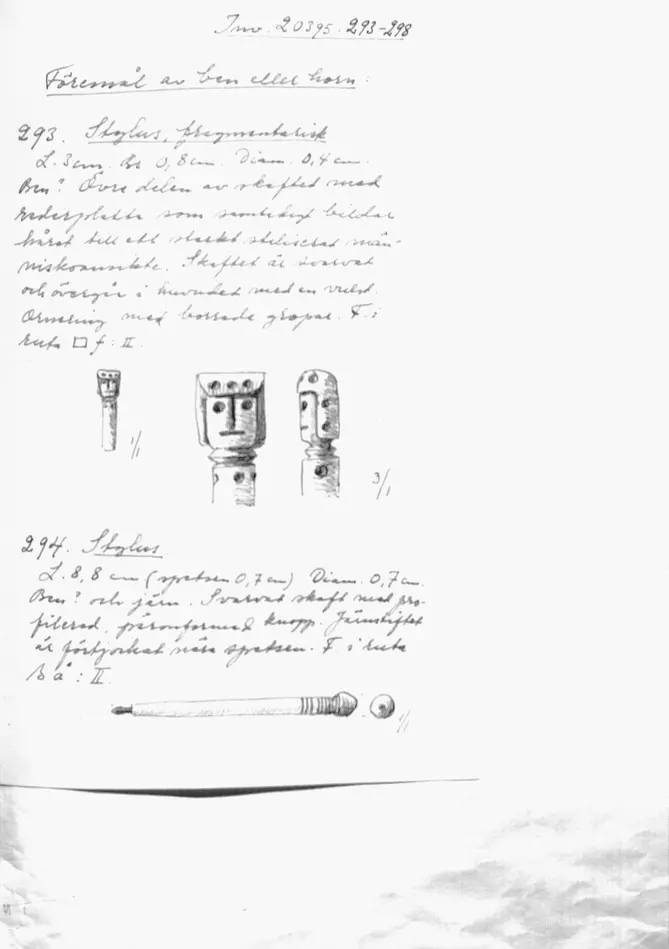 Inv. 20395. 293-298
Föremål av ben eller horn:
293. Stylus, fragmentarisk
L. 3 cm. Br 0,8 cm. Diam. 0,4 cm.
Ben? Övre delen av skaftet med
raderplatta som samtidigt bildar
håret till ett starkt stiliserat män-
niskoansikte. Skaftet är svarvat
och övergår i huvudet med en vulst.
Ornering med borrade gropar. F. i
ruta □ f : II.
1/1
3/1
294. Stylus
L. 8,8 cm (spetsen 0,7 cm) Diam. 0,7 cm.
Ben? och järn. Svarvat skaft med pro-
filerad, päronformad knopp. Järnstiftet
är förtjockat nära spetsen. F. i ruta
å : II.
1/1